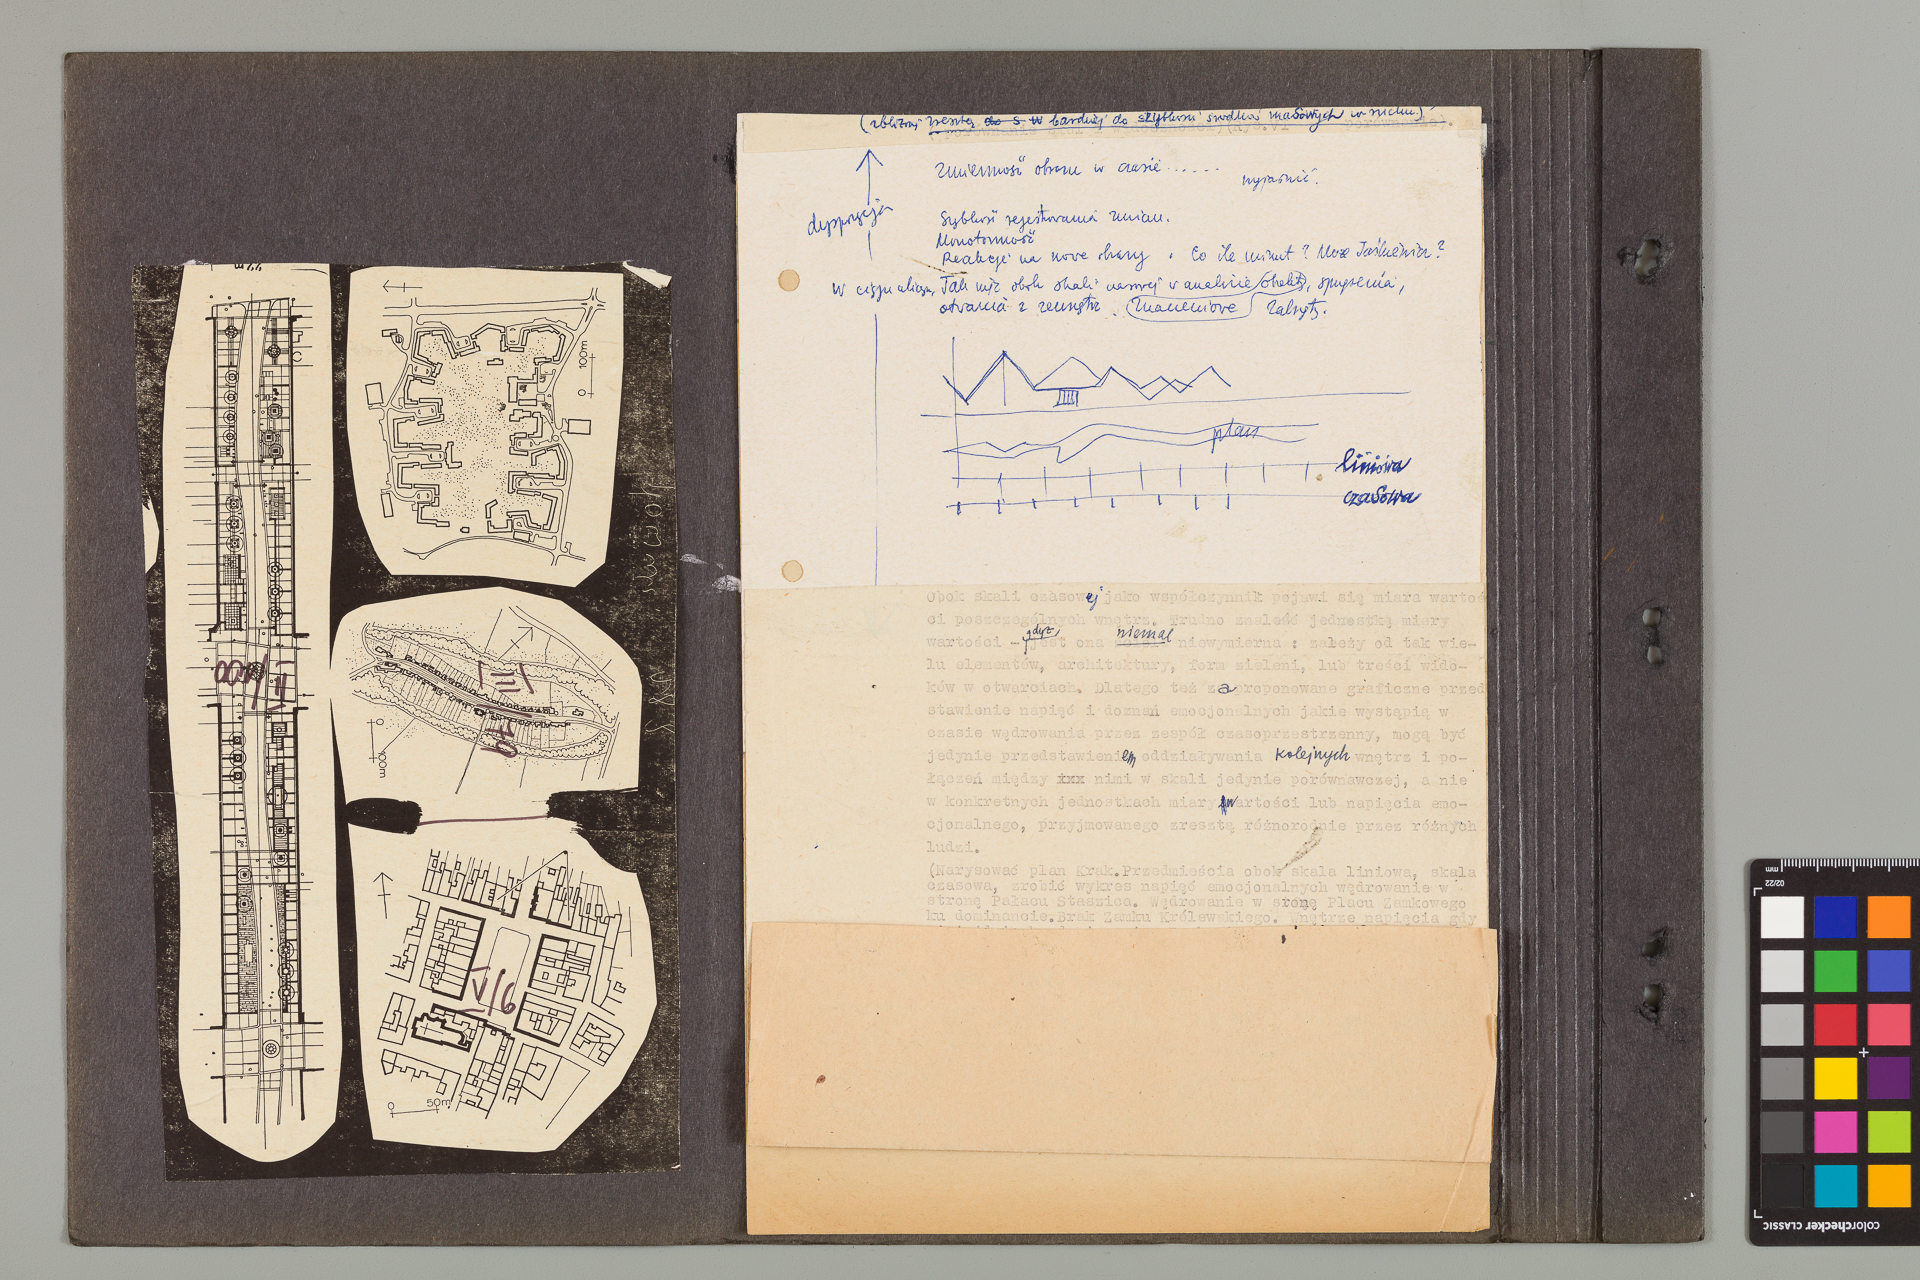 0 100m
0 100m
VIII
79
V/6
0 50m
(zbliżonej zresztą do s. w bardziej do szybkości środków masowych w ruchu.)
Zmienność obrazu w czasie ......
wyjaśnić.
dyspozycja
Szybkość rejestrowania zmian.
Monotonność
Reakcje na nowe obrazy . Co ile minut?
Tak więc obok skali
otwarcia z zewnątrz.
plan
liniowa
czasowa
Obok skali czasowej jako współczynnik pojawi się miara wartoś
ci poszczególnych wnętrz. Trudno znaleść jednostkę miary
wartości - gdyż jest ona niemal niewymierna : zależy od tak wie-
lu elementów, architektury, form zieleni, lub treści wido-
ków w otwarciach. Dlatego też zaproponowane graficzne przed
stawienie napięć i doznań emocjonalnych jakie wystąpią w
czasie wędrowania przez zespół czasoprzestrzenny, mogą być
jedynie przedstawieniem oddziaływania kolejnych wnętrz i po-
łączeń między xxx nimi w skali jedynie porównawczej, a nie
w konkretnych jednostkach miary wartości lub napięcia emo-
cjonalnego, przyjmowanego zresztą różnorodnie przez różnych
ludzi.
(Narysować plan Krak.Przedmieścia obok skala liniowa, skala
czasowa, zrobić wykres napięć emocjonalnych wędrowanie w
stronę Pałacu Staszica. Wędrowanie w stronę Placu Zamkowego
ku dominancie.Brak Zamku Królewskiego. Wnętrze napięcia gdy
mm
02/22
colorchecker CLASSIC